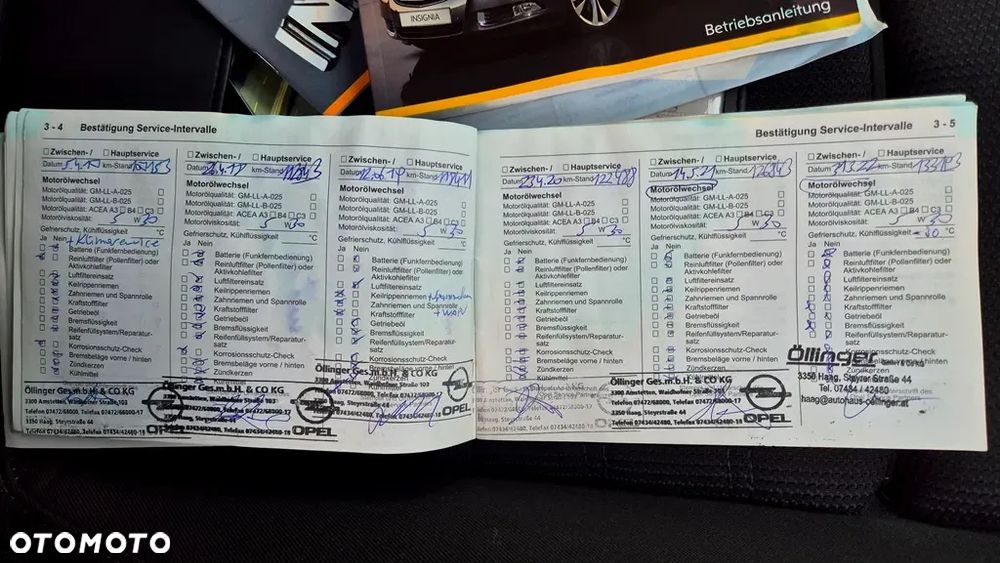 INSIGNIA
Betriebsanleitung
3 - 4 Bestätigung Service-Intervalle
Zwischen-/ Hauptservice
Datum km-Stand
Motorölwechsel
Motorölqualität: GM-LL-A-025
Motorölqualität: GM-LL-B-025
Motorölqualität: ACEA A3 B4 C3
Motorölviskosität: 5 W 30
Gefrierschutz, Kühlflüssigkeit °C
Ja Nein + Klimaservice
Batterie (Funkfernbedienung)
Reinluftfilter (Pollenfilter) oder
Aktivkohlefilter
Luftfiltereinsatz
Keilrippenriemen
Zahnriemen und Spannrolle
Kraftstofffilter
Getriebeöl
Bremsflüssigkeit
Reifenfüllsystem/Reparatur-
satz
Korrosionsschutz-Check
Bremsbeläge vorne / hinten
Zündkerzen
Kühlmittel
Öllinger Ges.m.b.H. & CO KG
3300 Amstetten, Waidhofner Straße 103
Telefon 07472/68000, Fax 07472/68000-17
3350 Haag, Steyrstraße 44
Telefon 07434/42480, Telefax 07434/42480-18
Zwischen-/ Hauptservice
Datum 26.4.18 km-Stand
Motorölwechsel
Motorölqualität: GM-LL-A-025
Motorölqualität: GM-LL-B-025
Motorölqualität: ACEA A3 B4 C3
Motorölviskosität: 5 W 30
Gefrierschutz, Kühlflüssigkeit °C
Ja Nein
Batterie (Funkfernbedienung)
Reinluftfilter (Pollenfilter) oder
Aktivkohlefilter
Luftfiltereinsatz
Keilrippenriemen
Zahnriemen und Spannrolle
Kraftstofffilter
Getriebeöl
Bremsflüssigkeit
Reifenfüllsystem/Reparatur-
satz
Korrosionsschutz-Check
Bremsbeläge vorne / hinten
Zündkerzen
Kühlmittel
Öllinger Ges.m.b.H. & CO KG
OPEL
Zwischen-/ Hauptservice
Datum 12.06.19 km-Stand
Motorölwechsel
Motorölqualität: GM-LL-A-025
Motorölqualität: GM-LL-B-025
Motorölqualität: ACEA A3 B4 C3
Motorölviskosität: 5 W 30
Gefrierschutz, Kühlflüssigkeit °C
Ja Nein
Batterie (Funkfernbedienung)
Reinluftfilter (Pollenfilter) oder
Aktivkohlefilter
Luftfiltereinsatz
Keilrippenriemen
Zahnriemen und Spannrolle
Kraftstofffilter + WAPU
Getriebeöl
Bremsflüssigkeit
Reifenfüllsystem/Reparatur-
satz
Korrosionsschutz-Check
Bremsbeläge vorne / hinten
Zündkerzen
Öllinger Ges.m.b.H. & CO KG
3300 Amstetten, Waidhofner Straße 103
OPEL
Bestätigung Service-Intervalle 3 - 5
Zwischen-/ Hauptservice
Datum 23.4.20 km-Stand
Motorölwechsel
Motorölqualität: GM-LL-A-025
Motorölqualität: GM-LL-B-025
Motorölqualität: ACEA A3 B4 C3
Motorölviskosität: 5 W 30
Gefrierschutz, Kühlflüssigkeit °C
Ja Nein
Batterie (Funkfernbedienung)
Reinluftfilter (Pollenfilter) oder
Aktivkohlefilter
Luftfiltereinsatz
Keilrippenriemen
Zahnriemen und Spannrolle
Kraftstofffilter
Getriebeöl
Bremsflüssigkeit
Reifenfüllsystem/Reparatur-
satz
Korrosionsschutz-Check
Bremsbeläge vorne / hinten
Zündkerzen
Kühlmittel
Zwischen-/ Hauptservice
Datum 14.5.21 km-Stand
Motorölwechsel
Motorölqualität: GM-LL-A-025
Motorölqualität: GM-LL-B-025
Motorölqualität: ACEA A3 B4 C3
Motorölviskosität: 5 W 30
Gefrierschutz, Kühlflüssigkeit °C
Ja Nein
Batterie (Funkfernbedienung)
Reinluftfilter (Pollenfilter) oder
Aktivkohlefilter
Luftfiltereinsatz
Keilrippenriemen
Zahnriemen und Spannrolle
Kraftstofffilter
Getriebeöl
Bremsflüssigkeit
Reifenfüllsystem/Reparatur-
satz
Korrosionsschutz-Check
Bremsbeläge vorne / hinten
Zündkerzen
Öllinger Ges.m.b.H. & CO KG
3300 Amstetten, Waidhofner Straße 103
Telefon 07472/68000, Fax 07472/68000-17
3350 Haag, Steyrstraße 44
Telefon 07434/42480, Telefax 07434/42480-18
OPEL
Zwischen-/ Hauptservice
Datum km-Stand
Motorölwechsel
Motorölqualität: GM-LL-A-025
Motorölqualität: GM-LL-B-025
Motorölqualität: ACEA A3 B4 C3
Motorölviskosität: 5 W 30
Gefrierschutz, Kühlflüssigkeit -30 °C
Ja Nein
Batterie (Funkfernbedienung)
Reinluftfilter (Pollenfilter) oder
Aktivkohlefilter
Luftfiltereinsatz
Keilrippenriemen
Zahnriemen und Spannrolle
Kraftstofffilter
Getriebeöl
Bremsflüssigkeit
Reifenfüllsystem/Reparatur-
satz
Öllinger GmbH & Co KG
3350 Haag, Steyrer Straße 44
Tel. 07434 / 42480
haag@autohaus-oellinger.at
OTOMOTO